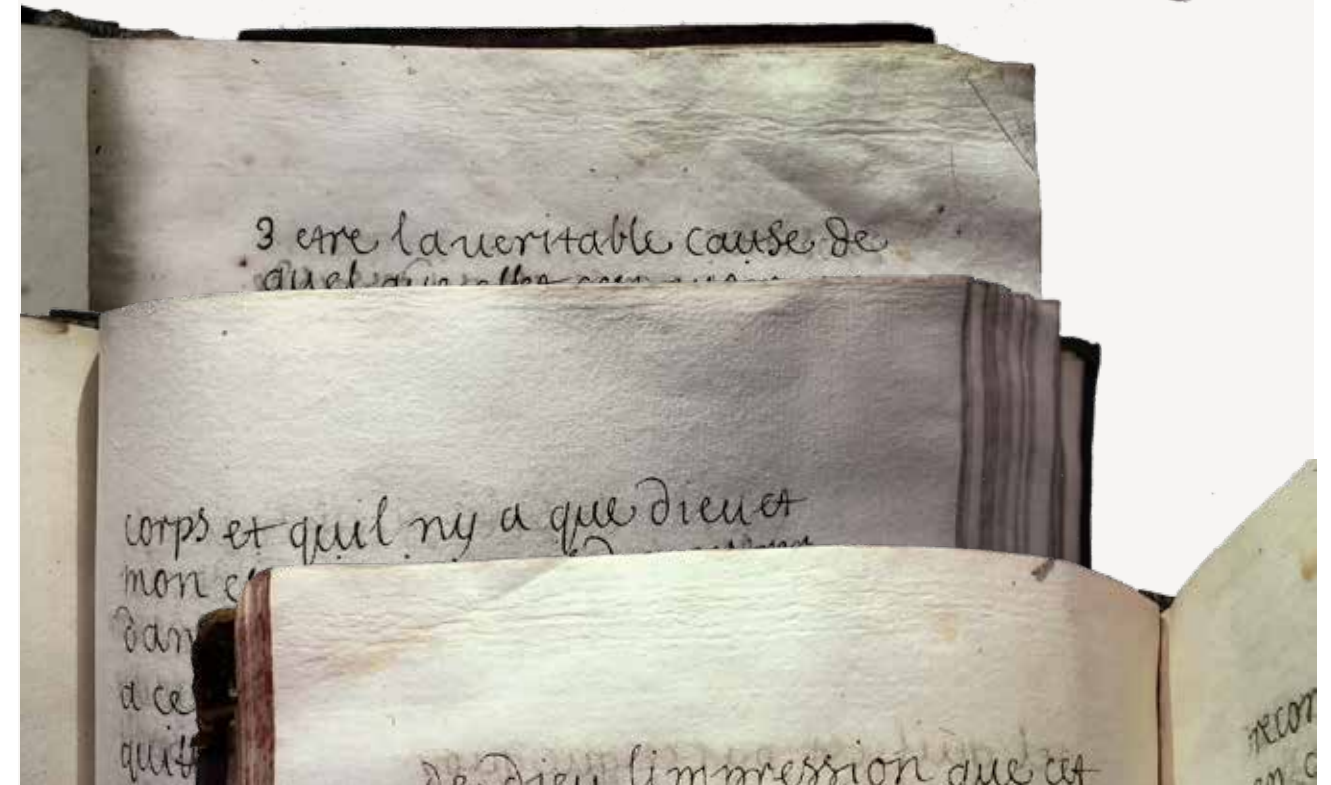 3 etre la ueritable cause de
corps et quil ny a que dieu et
mon
dan
a ce
quitt
de dieu limpression que cet
recon
en